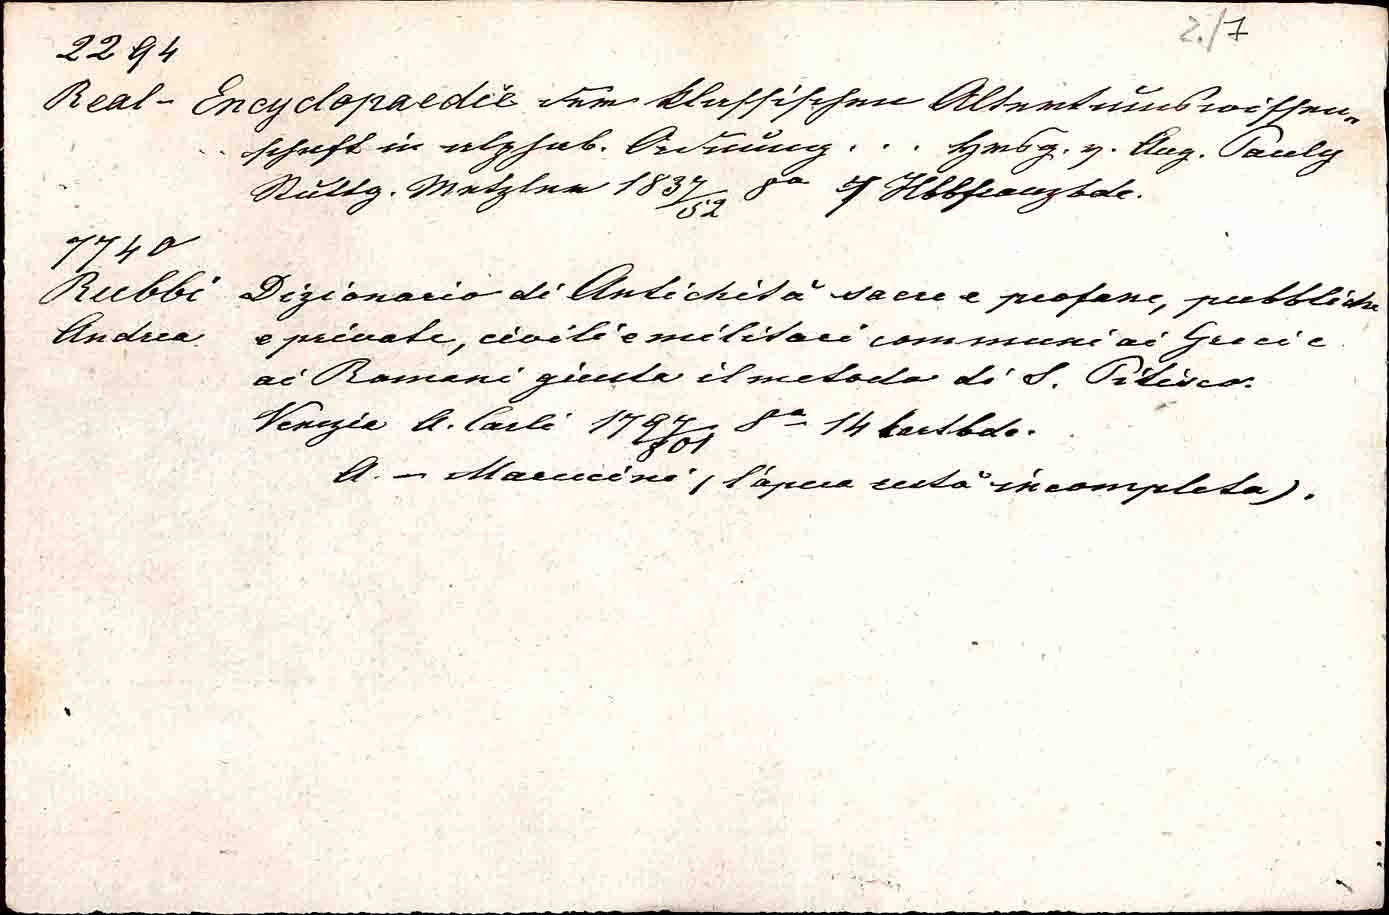 2./7
2294
Real- Encyclopaedie der klassischen Altertumswissen-
schaft in alphab. Ordnung . . . Hrsg. v. Aug. Pauly
Stuttg. Metzler 1837/52 8° 7 Hlbfranzbde.
7740
Rubbi Dizionario di Antichità sacre e profane, pubbliche
Andrea e private, civili e militari communi ai Greci e
ai Romani giusta il metodo di S. Pitisco.
Venezia A. Carli 1797/801 8° 14 Kartbde.
A. – Marucini (l'opera restà incompleta).